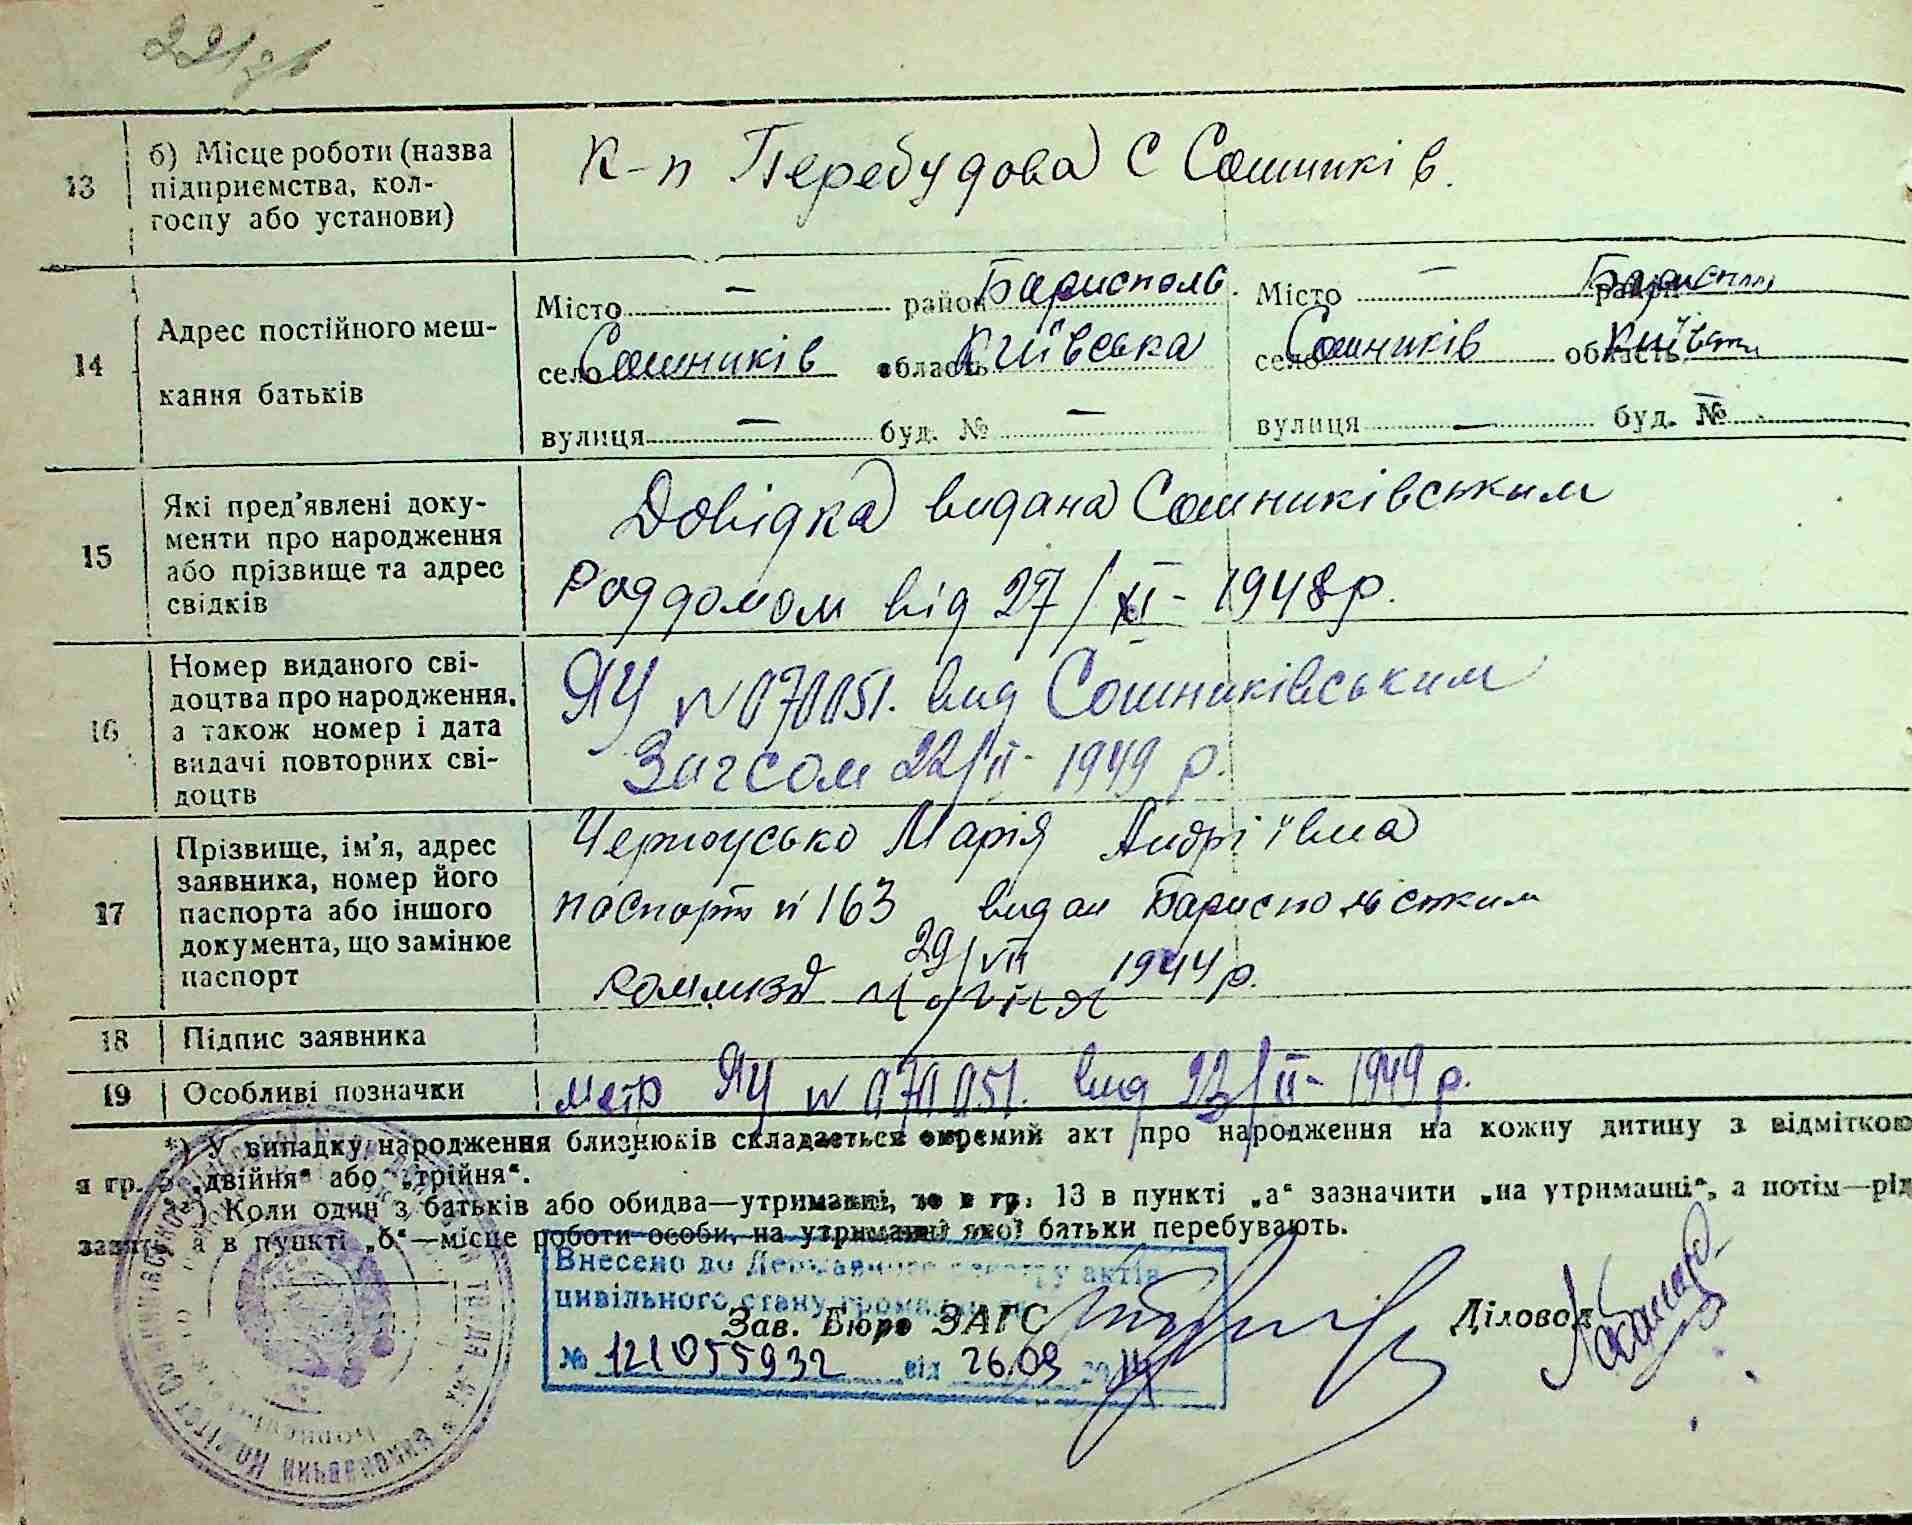 221
13
б) Місце роботи (назва
підприємства, кол-
госпу або установи)
К-п Перебудова с Сошників.
14
Адрес постійного меш-
кання батьків
Місто — район Барисполь.
село Сошників область Київська
вулиця — буд. № —
Місто — район
село Сошників область
вулиця — буд. №
15
Які пред'явлені доку-
менти про народження
або прізвище та адрес
свідків
Довідка видана Сошниківським
Роддомом від 27/XI- 1948 р.
16
Номер виданого сві-
доцтва про народження,
а також номер і дата
видачі повторних сві-
доцтв
ЯУ № 070051. вид Сошниківським
Загсом 22/II- 1949 р.
17
Прізвище, ім'я, адрес
заявника, номер його
паспорта або іншого
документа, що замінює
паспорт
Черноусько Марія Андріївна
паспорт № 163 видан Бариспольським
29/VII 1944 р.
18
Підпис заявника
19
Особливі позначки
метр ЯУ № 070051. вид 22/II- 1949 р.
*) У випадку народження близнюків складається окремий акт про народження на кожну дитину з відміткою
я гр. 3 „двійня“ або „трійня“.
Коли один з батьків або обидва—утриманні, то в гр. 13 в пункті „а“ зазначити „на утриманні“, а потім—рід
а в пункті „б“—місце роботи особи, на утриманні якої батьки перебувають.
Внесено до Державного реєстру актів
цивільного стану громадян за
Зав. Бюро ЗАГС
Діловод
№ 121055932 від 26.09 2014